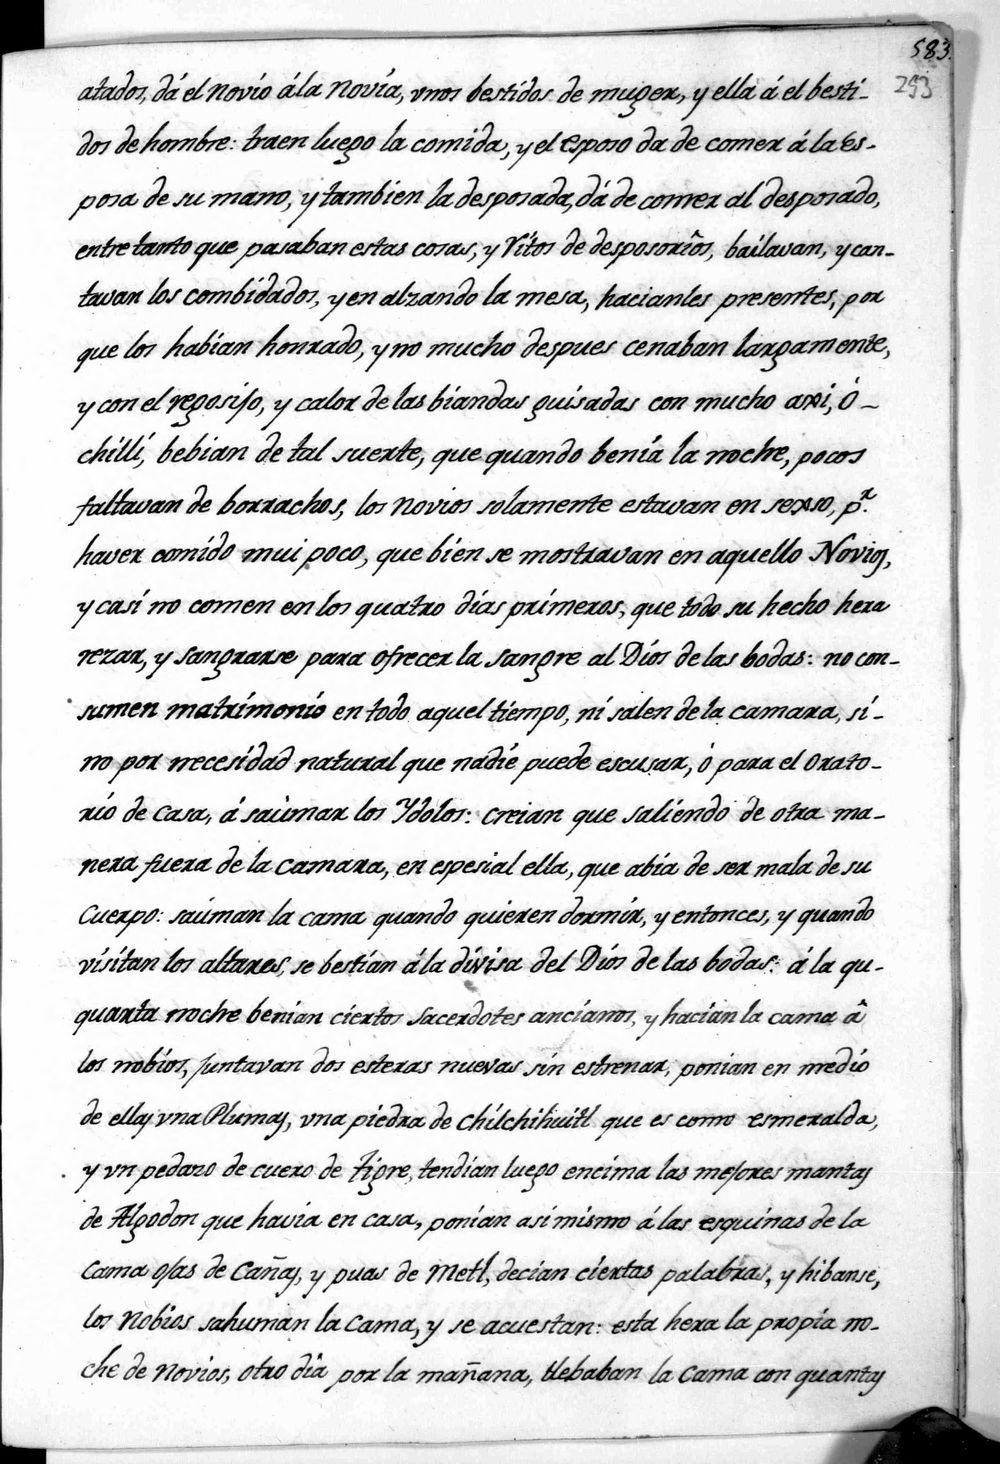 583.
293
atados, dá el Novio á la Novia, vnos bestidos de muger, y ella á el besti-
dos de hombre: traen luego la comida, y el esposo da de comer á la Es-
posa de su mano, y tambien la desposada, dá de comer al desposado,
entre tanto que pasaban estas cosas, y Vitos de desposorios, bailavan, y can-
tavan los combidados, y en alzando la mesa, hacianles presentes, por
que los habian honrado, y no mucho despues cenaban largamente,
y con el regosijo, y calor de las biandas guisadas con mucho axi, ó-
chilli, bebian de tal suerte, que quando benia la noche, pocos
faltavan de borrachos, los Novios solamente estavan en sexso, p.r
haver comido mui poco, que bien se mostravan en aquello Novios,
y casi no comen en los quatro dias primeros, que todo su hecho hera
rezar, y sangrarse para ofrecer la sangre al Dios de las bodas: no con-
sumen matrimonio en todo aquel tiempo, ni salen de la camara, si-
no por necesidad natural que nadie puede escusar, ó para el Orato-
rio de Casa, á saúmar los Ydolos: creian que saliendo de otra ma-
nera fuera de la camara, en espesial ella, que abia de ser mala de su
Cuerpo: saúman la cama quando quieren dormir, y entonces, y quando
visitan los altares, se bestian á la divisa del Dios de las bodas: á la qu-
quarta noche benian ciertos Sacerdotes ancianos, y hacian la cama â
los nobios, juntavan dos esteras nuevas sin estrenar, ponian en medio
de ellas vna Plumas, vna piedra de chilchihuitl que es como esmeralda,
y vn pedazo de cuero de tigre, tendian luego encima las mejores mantas
de Algodon que havia en casa, ponian asimismo á las esquinas de la
Cama ojas de Cañas, y puas de Metl, decian ciertas palabras, y hibanse,
los Nobios sahuman la Cama, y se acuestan: esta hera la propia no-
che de Novios, otro dia por la mañana, llebaban la Cama con quantas